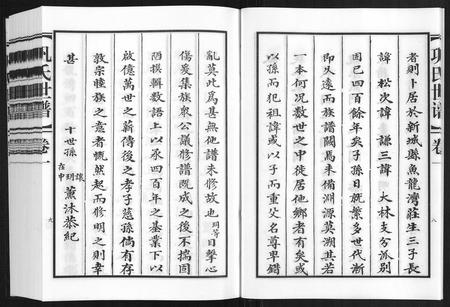 巩氏世谱
卷一
者則卜居於新城縣魚龍灣莊生三子長
諱 松次諱 謙三諱 大林支分派別
因已四百餘年矣子孫日就繁多世代漸
即久遠而族譜闕焉未備淵源莫溯其若
一本何況数世之中徒居他鄉者有或
以孫而犯祖諱或以子而重父名尊卑錯
亂莫此爲甚無他譜未修故也玥等目擊心
傷爰集族衆公議修譜既成之後不揣固
陋撰輯数語上以承四百年之基業下以
啟億萬世之薪傳後之孝子慈孫倘有存
敦宗睦族之意者慨然起而修明之則幸
甚
十世孫 在中 玥 鑲 薰沐恭紀
八
九
巩氏世谱
卷一